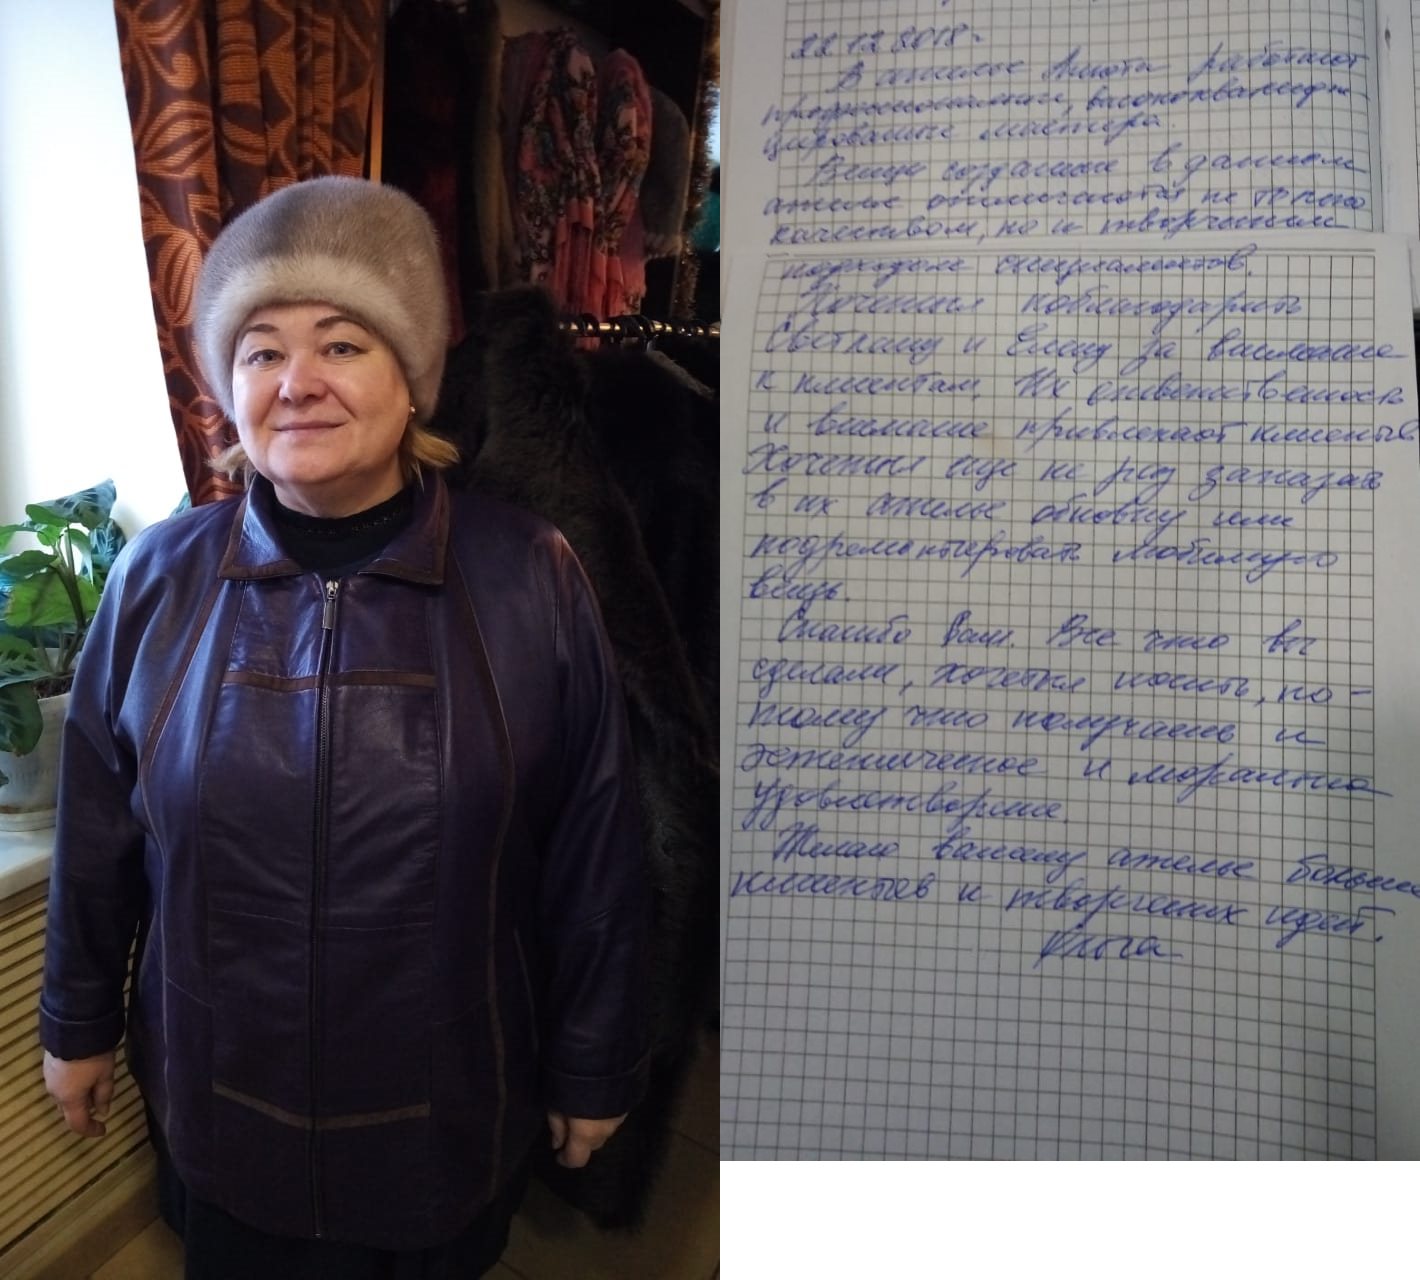 22.12.2018г.
В ателье работают
профессионалы, высококвалифи-
цированые мастера.
Вещи созданые в данном
ателье отличаются не только
качеством, но и творческим
подходом специалистов.
Хочеться поблагодарить
Светлану и Елену за внимание
к клиентам. Их ответственность
и внимание привлекает клиентов
Хочеться еще не раз заказать
в их ателье обновку или
подремонтировать любимую
вещь.
Спасибо Вам. Все что вы
сделали, хочеться носить, по-
тому что получаешь и
эстетическое и морально
удовлетворение.
Желаю вашему ателье больше
клиентов и творческих идей.
Ольга